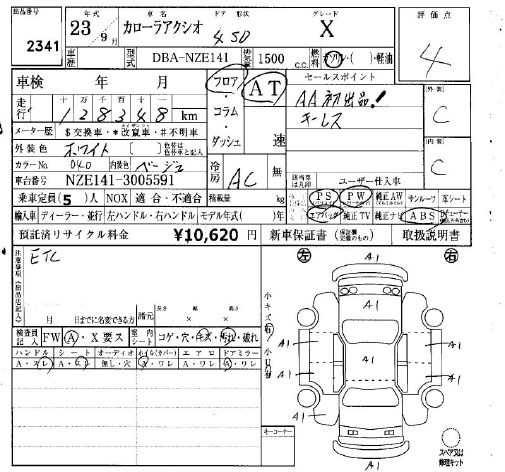 出品番号 2341
年式 23年9月 車名 カローラアクシオ ドア形状 4SD グレード X 評価点 4
車歴 型式 DBA-NZE141 排気量 1500 c.c. 燃料 ガソリン・( )・軽油
車検 年 月 フロア・コラム・ダッシュ AT 速 セールスポイント
走行 十万 万 千 百 十 一 128348 km AA初出品! キーレス 外装 C
メーター歴 $交換車・*改竄車・#不明車
外装色 ホワイト 色替は色替車と記入 冷房 AC 無 内装 C
カラーNo. 040 内装色 ベージュ
車台番号 NZE141-3005591 ユーザー仕入車
乗車定員(5)人 NOX 適合・不適合 積載量 kg PS PW 純正AW サンルーフ 革シート
輸入車 ディーラー・並行 左ハンドル・右ハンドル モデル年式( )年 エアバッグ 純正TV 純正ナビ ABS
預託済リサイクル料金 ¥10,620 円 新車保証書 取扱説明書
注意事項(出品店記入) ETC
左 A1 右
月 日までに名変できる方 諸元 長さ 幅 高さ × ×
小キズ有 小凹有
検査員記入 FW A・X要ス 室内シート コゲ・穴・キズ・汚れ・破れ
ハンドル シート オーディオ ホイル(カバー) エアロ ドアミラー
A・スレ A・ 無し・穴 A・ワレ A・ワレ A・ワレ
A1
A1 A1
A1 A1 A1
A1 A1
A1 A1
A1
キーコーナー
スペア又は修理キット